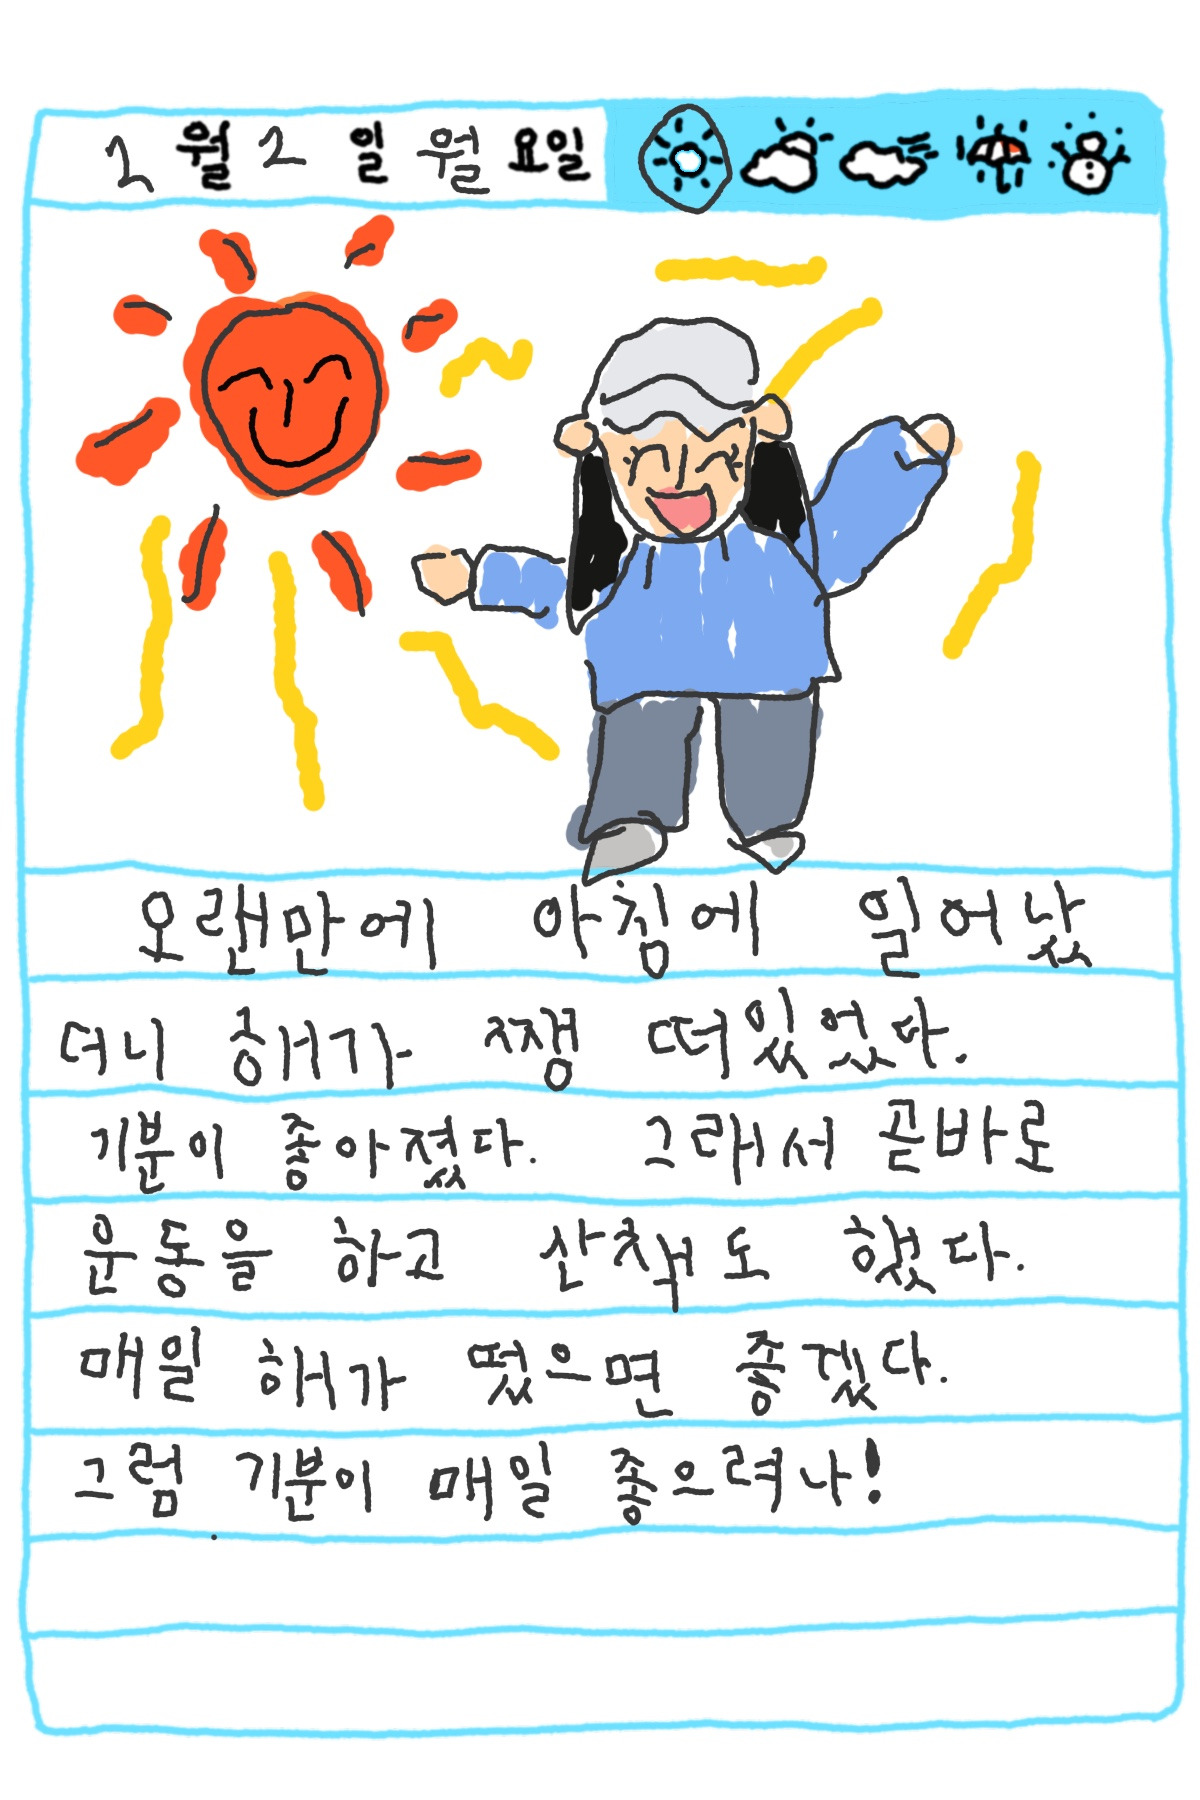 2월 2일 월요일
오랜만에 아침에 일어났
더니 해가 쨍 떠있었다.
기분이 좋아졌다. 그래서 곧바로
운동을 하고 산책도 했다.
매일 해가 떴으면 좋겠다.
그럼 기분이 매일 좋으려나!